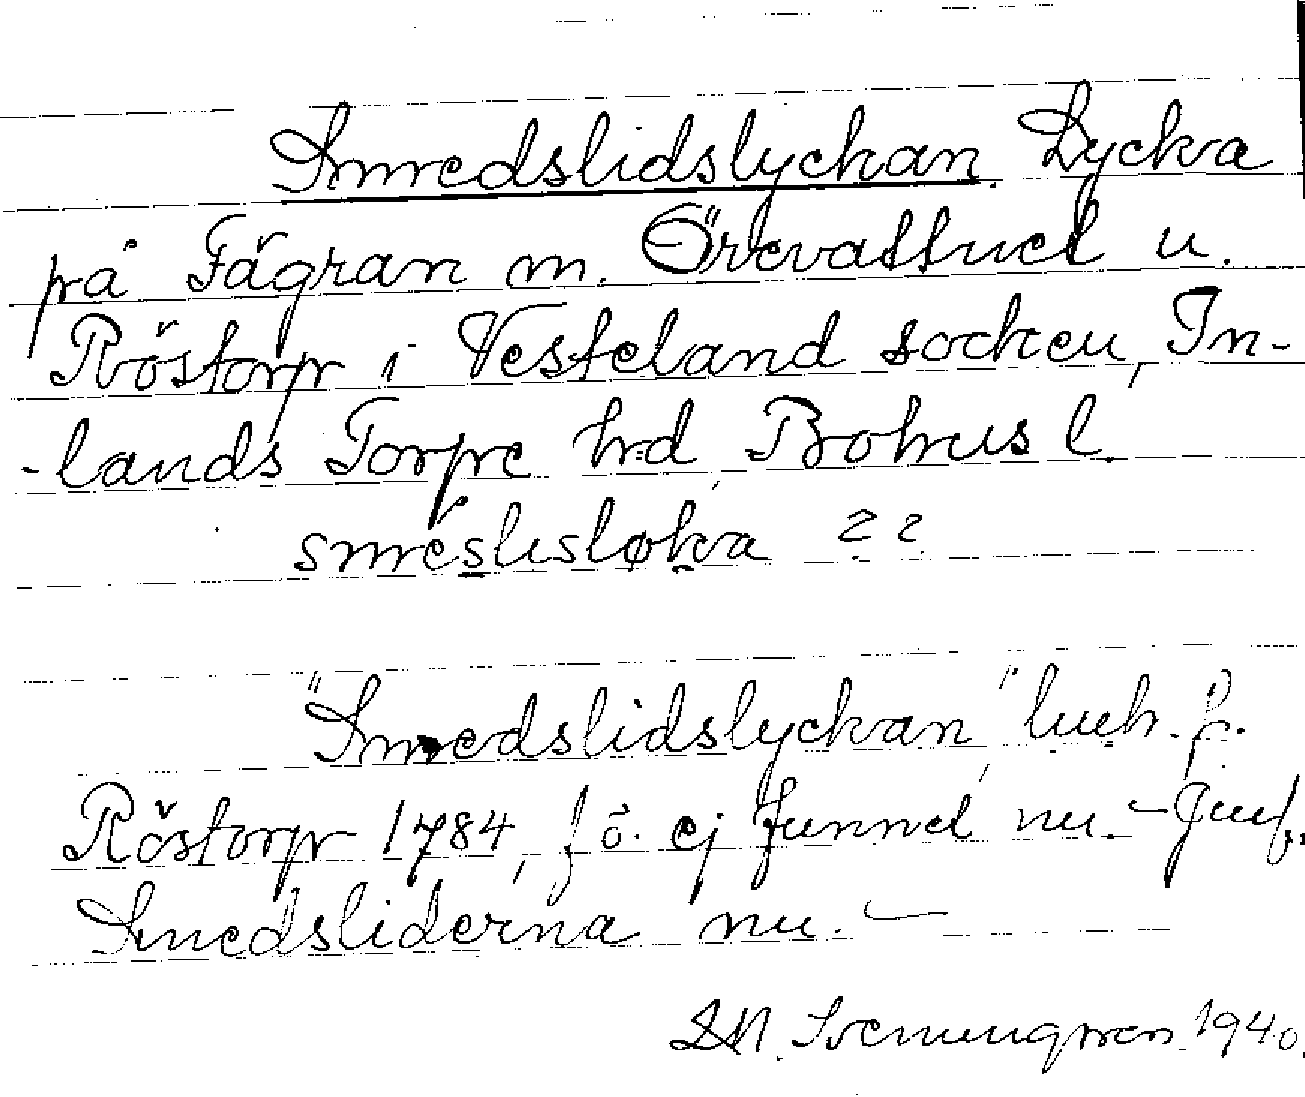 Smedslidslyckan. Lycka
på Fägran m. Örevattnet u.
Röstorp i Vesteland socken, In-
-lands Torpe hrd, Bohus l.
smeslisløka ??
"Smedslidslyckan" luch. f.
Röstorp 1784, f ö. ej funnet nu. - Jmf.
Smedsliderna nu. —
D.N. Svenungsson 1940.